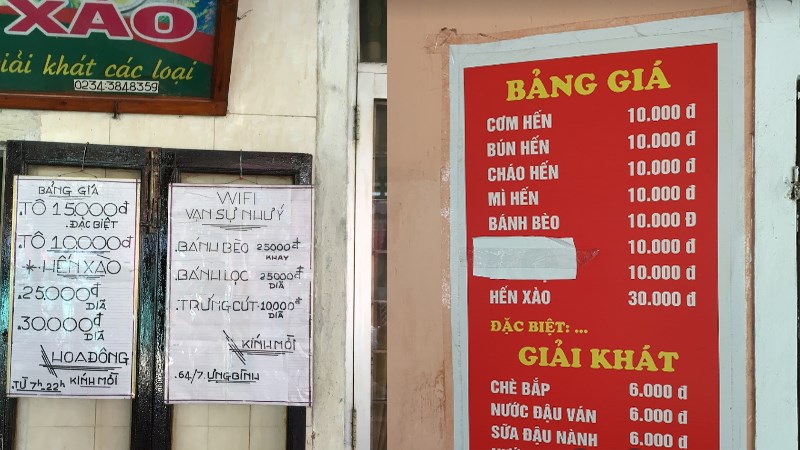 XÀO
giải khát các loại
0234.3848359
BẢNG GIÁ
.TÔ 15000đ
.ĐẶC BIỆT
.TÔ 10000đ
* HẾN XÀO
.25000đ
DĨA
.30000đ
DĨA
HOA ĐÔNG
.TỪ 7h-22h KÍNH MỜI
WIFI
VẠN SỰ NHƯ Ý
.BÁNH BÈO 25000đ
KHAY
.BÁNH LỌC 25000đ
DĨA
.TRỨNG CÚT-10000đ
DĨA
KÍNH MỜI
.64/7.ƯNG BÌNH
BẢNG GIÁ
CƠM HẾN 10.000 đ
BÚN HẾN 10.000 đ
CHÁO HẾN 10.000 đ
MÌ HẾN 10.000 đ
BÁNH BÈO 10.000 Đ
10.000 đ
10.000 đ
HẾN XÀO 30.000 đ
ĐẶC BIỆT: ...
GIẢI KHÁT
CHÈ BẮP 6.000 đ
NƯỚC ĐẬU VÁN 6.000 đ
SỮA ĐẬU NÀNH 6.000 đ